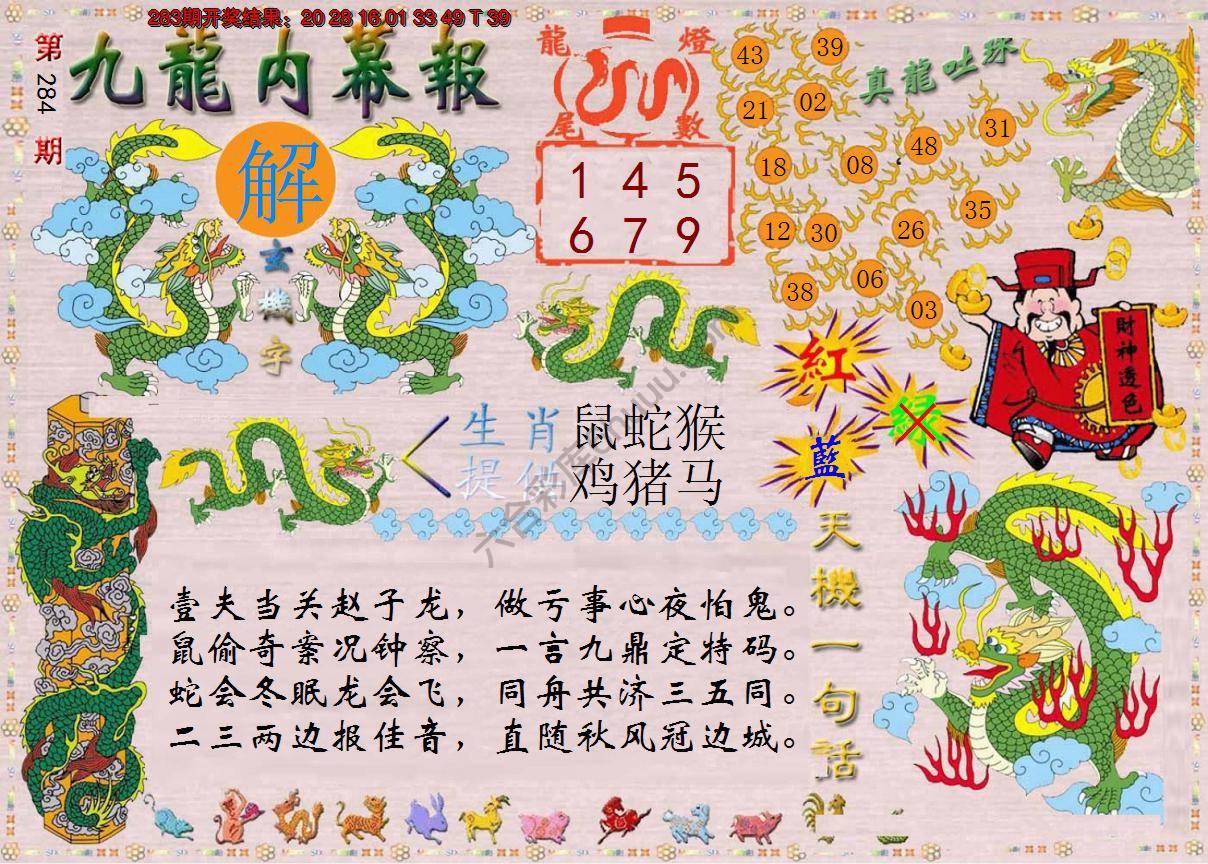 283期开奖结果：20 28 16 01 33 49 T 39
第284期
九龍内幕報
解
玄機字
龍燈
尾數
1 4 5
6 7 9
真龍吐珠
43
39
21
02
18
08
48
31
12
30
26
35
38
06
03
財神透色
紅
綠
藍
生肖
提供
鼠蛇猴
鸡猪马
六合彩库
天機一句話
壹夫当关赵子龙，做亏事心夜怕鬼。
鼠偷奇案况钟察，一言九鼎定特码。
蛇会冬眠龙会飞，同舟共济三五同。
二三两边报佳音，直随秋风冠边城。